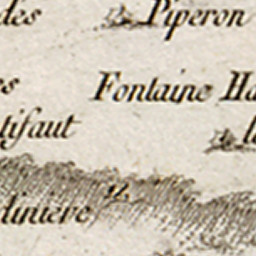 des Piperon
es
Fontaine Ha
tifaut
l
diniere